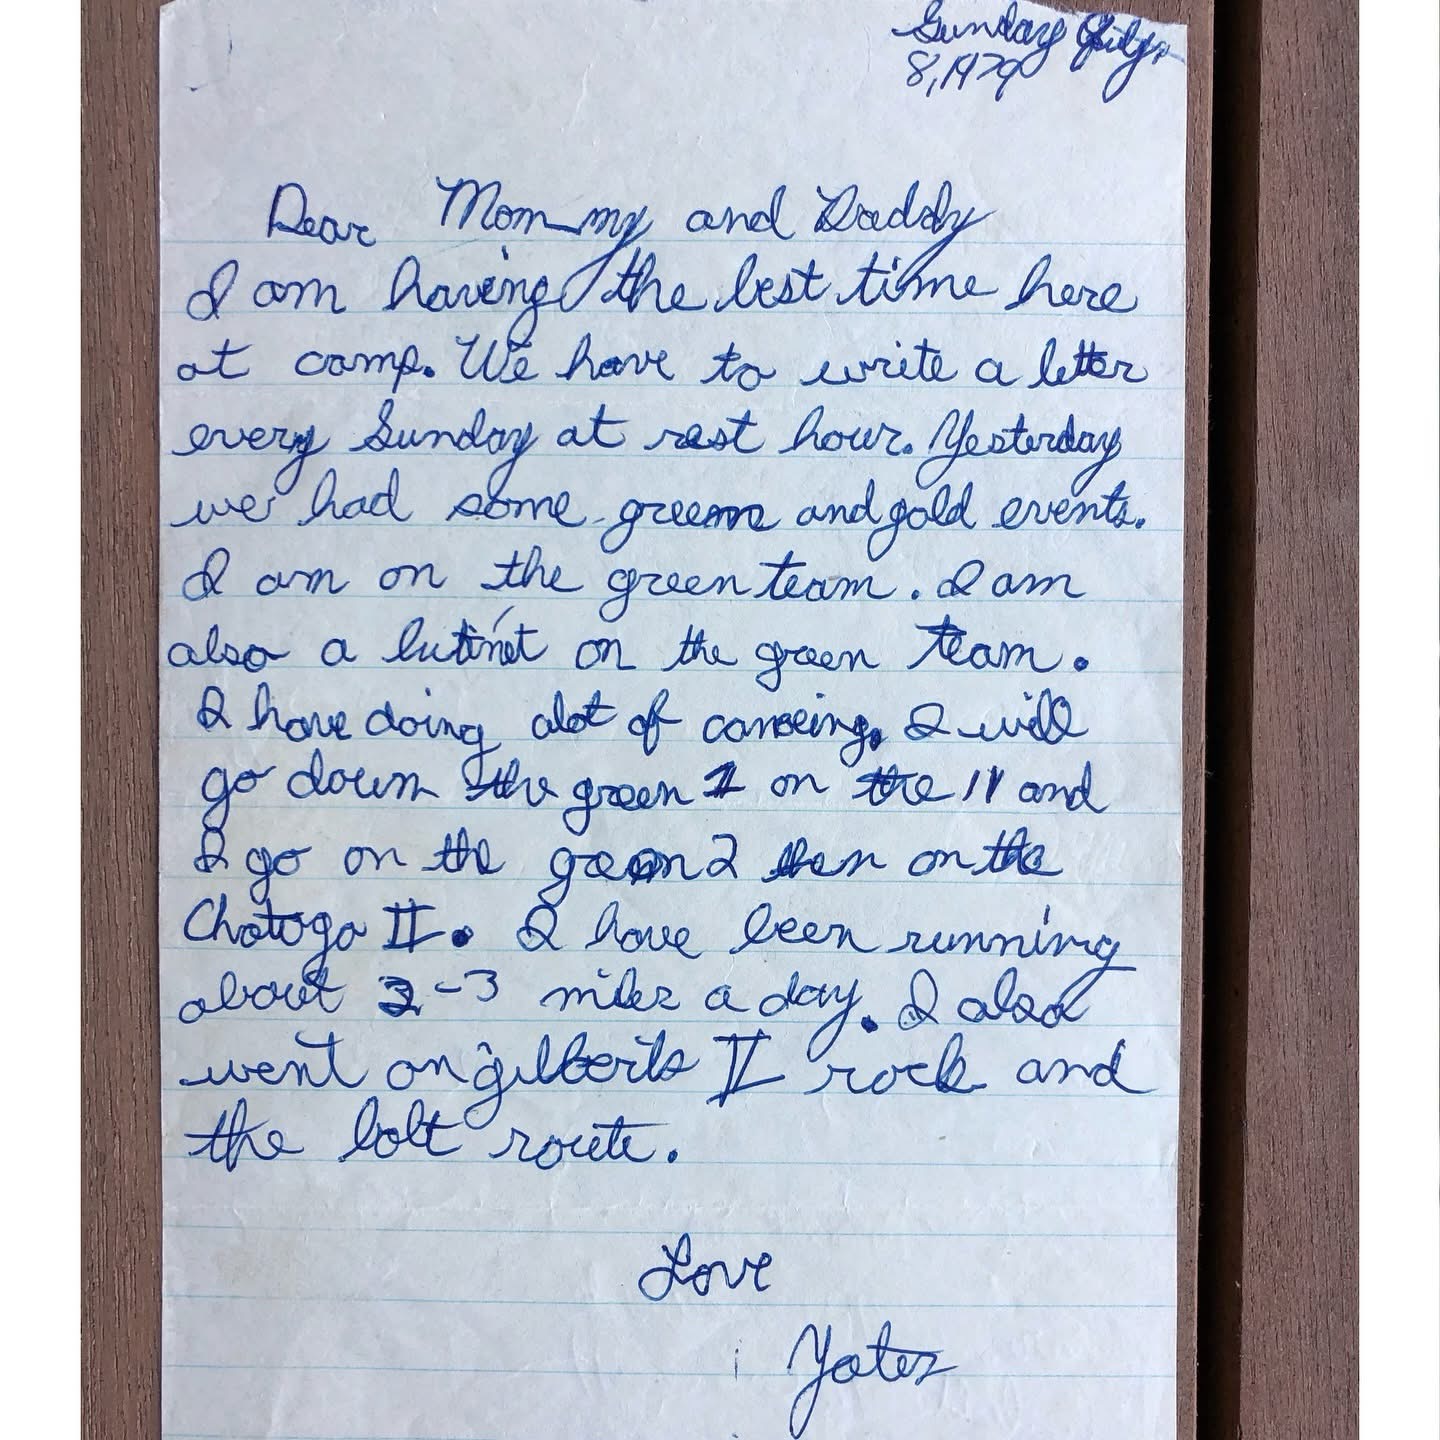 Sunday July
8, 1979
Dear Mommy and Daddy
I am having the best time here
at camp. We have to write a letter
every Sunday at rest hour. Yesterday
we had some green and gold events.
I am on the green team. I am
also a lutinet on the green team.
I have doing alot of canoeing. I will
go down the green 1 on the 11 and
I go on the green 2 then on the
Chatoga II. I have been running
about 2-3 miles a day. I also
went on gilberts II rock and
the bolt route.
Love
Yates